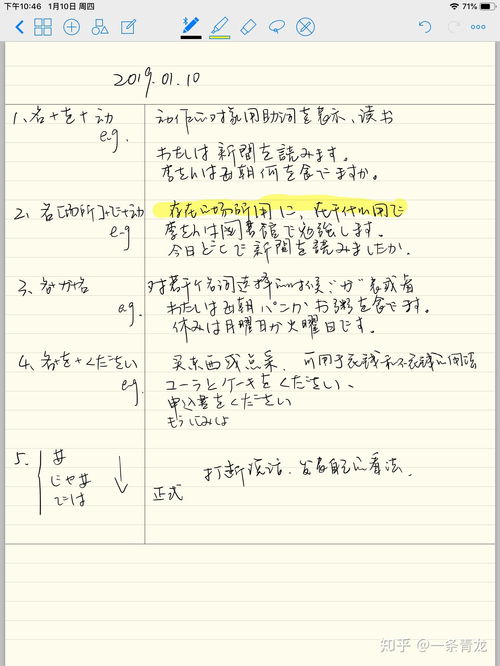 下午10:46 1月10日 周四
71%
2019.01.10
1、名+を+动 动作的对象用助词を表示、读书
e.g.
わたしは新聞を読みます。
李さんは毎朝何を食べますか。
2、名[场所]+で+动 存在的场所用に,
e.g 李さんは図書館で勉強します。
今日どこで新聞を読みましたか。
3、名か名 对若干个名词选择的时候:"か"表或者
e.g. わたしは毎朝パンかお粥を食べます。
休みは月曜日か火曜日です。
4、名を+ください 买东西或点菜.
e.g. コーラとケーキをください、
申込書をください
5、
じゃあ
では 正式
打断说话. 发表自己的看法.
知乎 @一条青龙